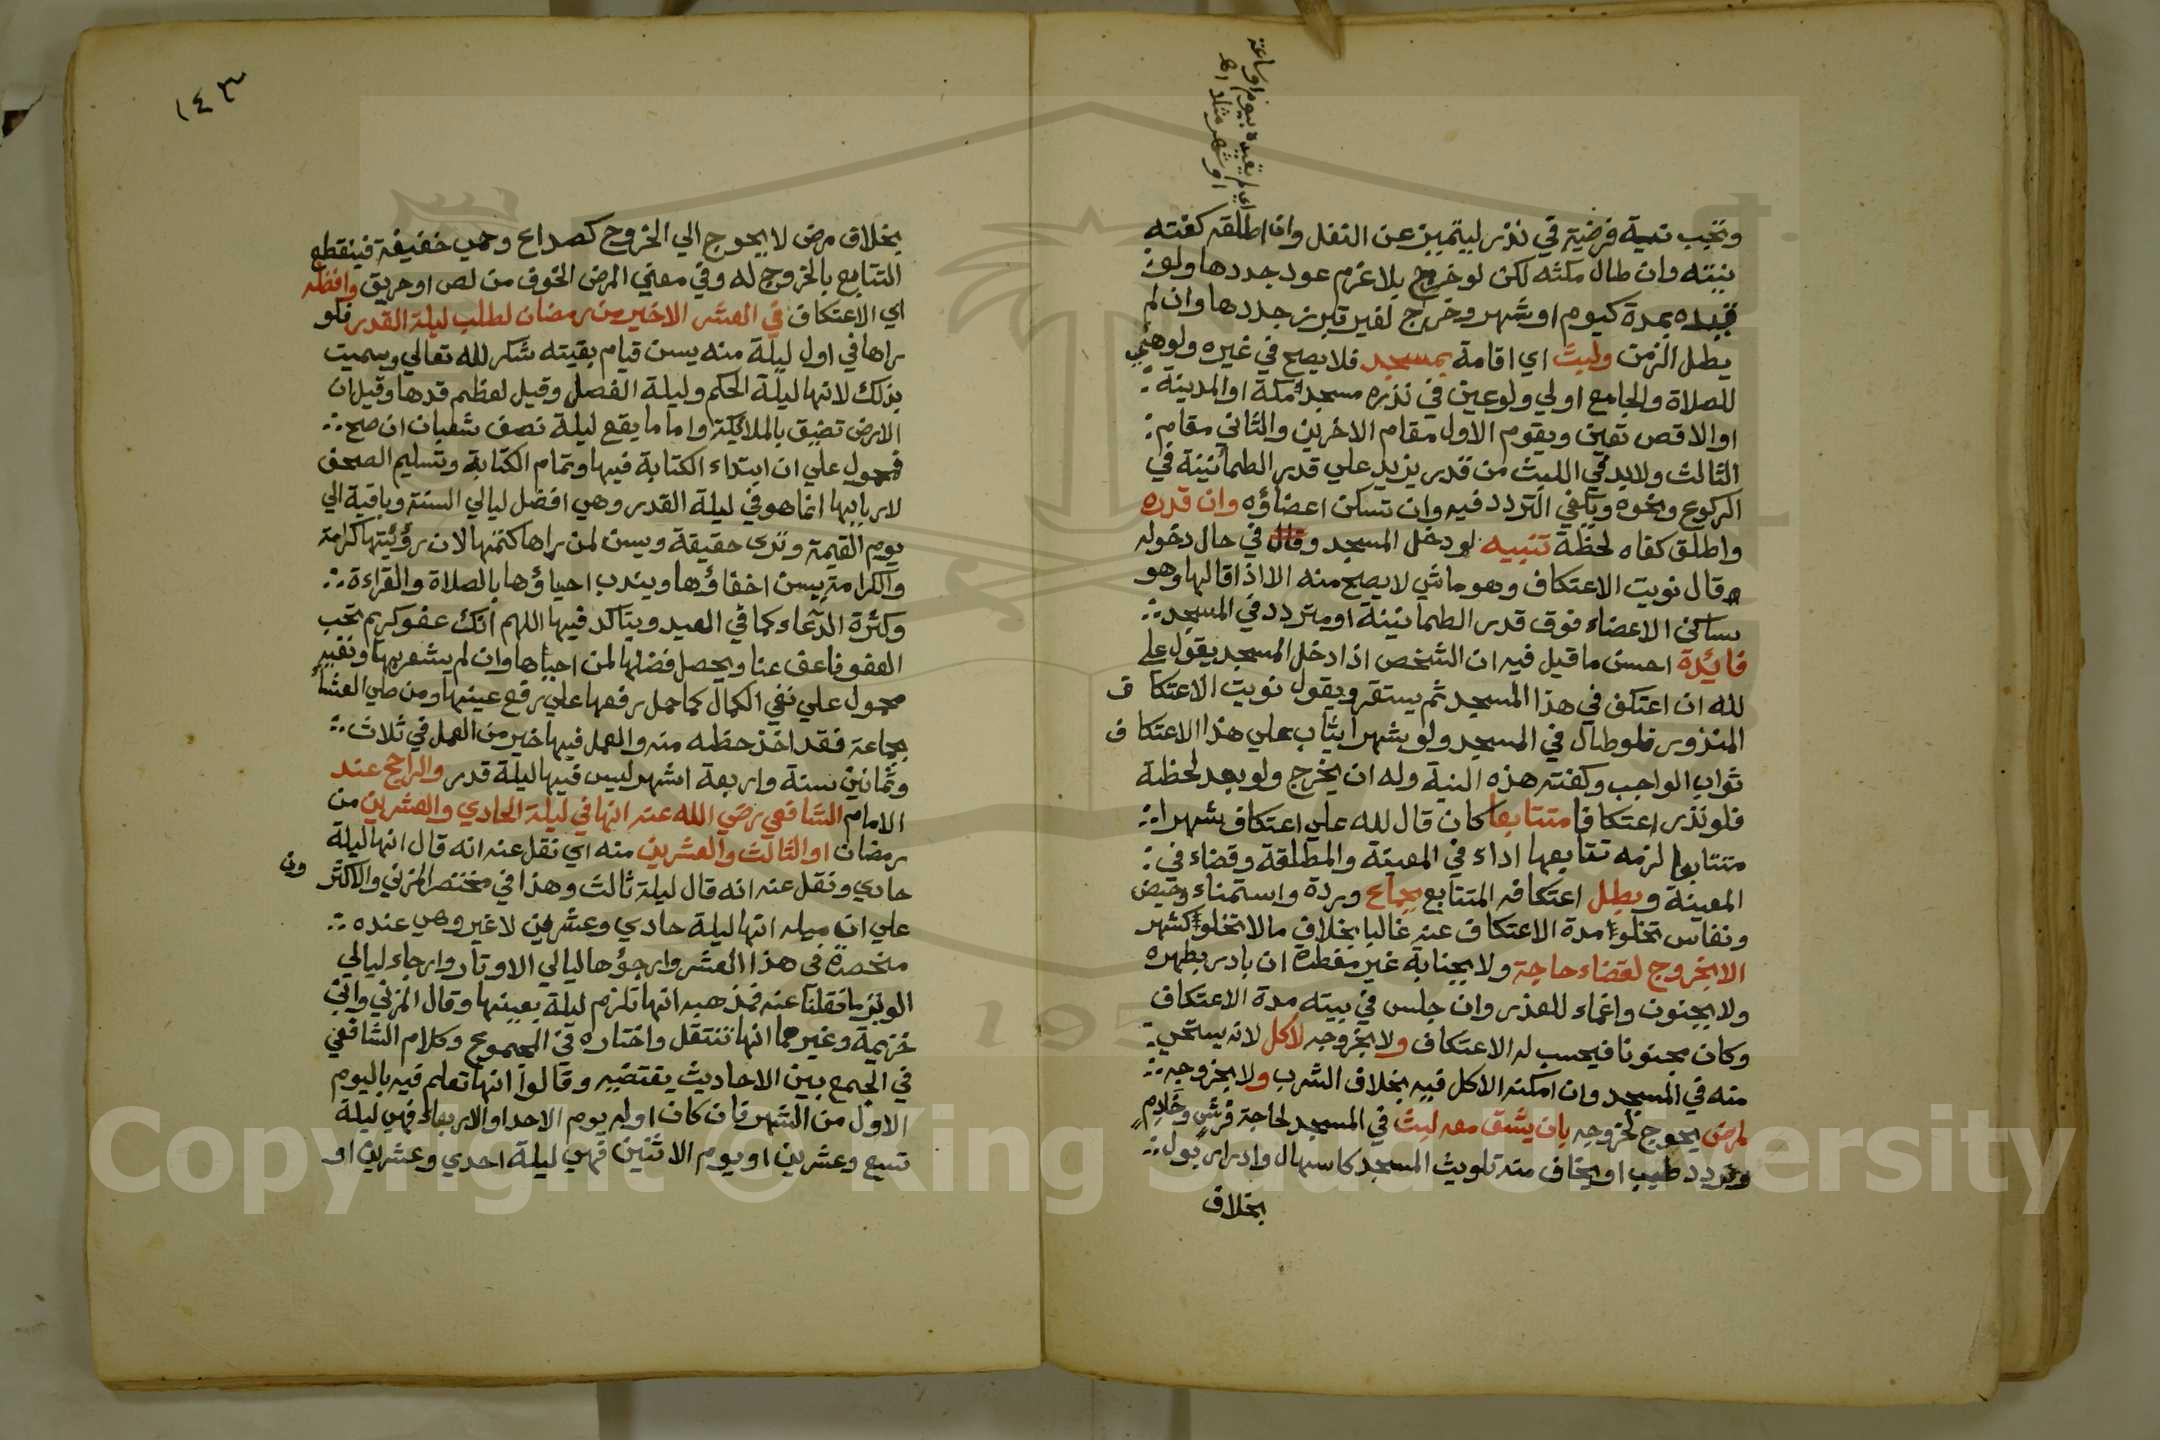 اي لم يقيده بيوم او ساعة
او شهر مثلا اهـ
وتجب نية فرضية في نذر ليتميز عن النفل وان اطلقه كفته
نيته وان طال مكثه لكن لو خرج بلا عزم عود جددها ولو
قيده بمدة كيوم او شهر وخرج لغير تبرز جددها وان لم
يطل الزمن ولبث اي اقامة بمسجد فلا يصح في غيره ولو هيئ
للصلاة والجامع اولي ولو عين في نذره مسجد مكة او المدينة
او الاقصى تعين ويقوم الاول مقام الاخرين والثاني مقام
الثالث ولابد في اللبث من قدر يزيد علي قدر الطمأنينة في
الركوع ونحوه ويكفي التردد فيه وان تسكن اعضاؤه وان قدره
واطلق كفاه لحظة تنبيه لو دخل المسجد وقال في حال دخوله
قال نويت الاعتكاف وهو ماشي لا يصح منه الا اذا قالها وهو
ساكن الاعضاء فوق قدر الطمانينة او متردد في المسجد
فايدة احسن ما قيل فيه ان الشخص اذا دخل المسجد يقول علي
لله ان اعتكف في هذا المسجد ثم يستقر ويقول نويت الاعتكاف
المنذور فلو طال في المسجد ولو شهرا يثاب علي هذا الاعتكاف
ثواب الواجب وكفته هذه النية وله ان يخرج ولو بعد لحظة
فلو نذر اعتكافا متتابعا كان قال لله علي اعتكاف شهرا
متتابعا لزمه تتابعها اداء في المعينة والمطلقة وقضاء في
المعينة ويطل اعتكافه المتتابع بجماع وردة واستمناء وحيض
ونفاس تخلو مدة الاعتكاف عنه غالبا بخلاف مالا تخلو كشهر
الا بخروج لقضاء حاجة ولا بجنابة غير مفطرة ان بادر بطهره
ولا بجنون واغماء للعذر وان جلس في بيته مدة الاعتكاف
وكان مجنونا فيحسب له الاعتكاف ولا بخروجه لاكل لانه يستحي
منه في المسجد وان امكنه الاكل فيه بخلاف الشرب ولا بخروجه
لمرض يحوج لخروجه بان يشق معه لبث في المسجد لحاجة فرش وخادم
وتردد طبيب او يخاف منه تلويث المسجد كاسهال وادرار بول
بخلاف
١٤٣
بخلاف مرض لا يحوج الي الخروج كصداع وحمي خفيفة فينقطع
التتابع بالخروج له وفي معني المرض الخوف من لص او حريق وافضله
اي الاعتكاف في العشر الاخير من رمضان لطلب ليلة القدر فلو
راها في اول ليلة منه يسن قيام بقيته شكر لله تعالي وسميت
بذلك لانها ليلة الحكم وليلة الفصل وقيل لعظم قدها وقيل ان
الارض تضيق بالملائكة واما ما يقع ليلة نصف شعبان ان صح
فمحول علي ان ابتداء الكتابة فيها وتمام الكتابة وتسليم الصحف
لاربابها انما هو في ليلة القدر وهي افضل ليالي السنة وباقية الي
يوم القيمة وتري حقيقة ويسن لمن راها كتمها لان رؤيتها كرامة
والكرامة يسن اخفاؤها ويندب احياؤها بالصلاة والقراءة
وكثرة الدعاء كما في العيد ويتاكد فيها اللهم انك عفو كريم تحب
العفو فاعف عنا ويحصل فضلها لمن احياها وان لم يشعر بها ونفيه
محول علي نفي الكمال كما حمل رفعها علي رفع عينها ومن صلي العشاء
بجماعة فقد اخذ حظه منه والعمل فيها خير من العمل في ثلاث
وثمانين سنة واربعة اشهر ليس فيها ليلة قدر والراجح عند
الامام الشافعي رضي الله عنه انها في ليلة الحادي والعشرين من
رمضان او الثالث والعشرين منه اي نقل عنه انه قال انها ليلة
حادي ونقل عنه انه قال ليلة ثالث وهذا في مختصر المزني والاكثرون
علي ان ميله انها ليلة حادي وعشرين لا غير وهي عنده
منحصرة في هذا العشر وارجؤها ليالي الاوتار وارجاء ليالي
الوتر ما نقلنا عنه فمذهبه انها تلزم ليلة بعينها وقال المزني وابن
خزيمة وغيرهما انها تنتقل واختاره في المجموع وكلام الشافعي
في الجمع بين الاحاديث يقتضيه وقالوا انها تعلم فيه باليوم
الاول من الشهر فان كان اوله يوم الاحد او الاربعاء فهي ليلة
تسع وعشرين او يوم الاثنين فهي ليلة احدي وعشرين او
Copyright © King Saud University